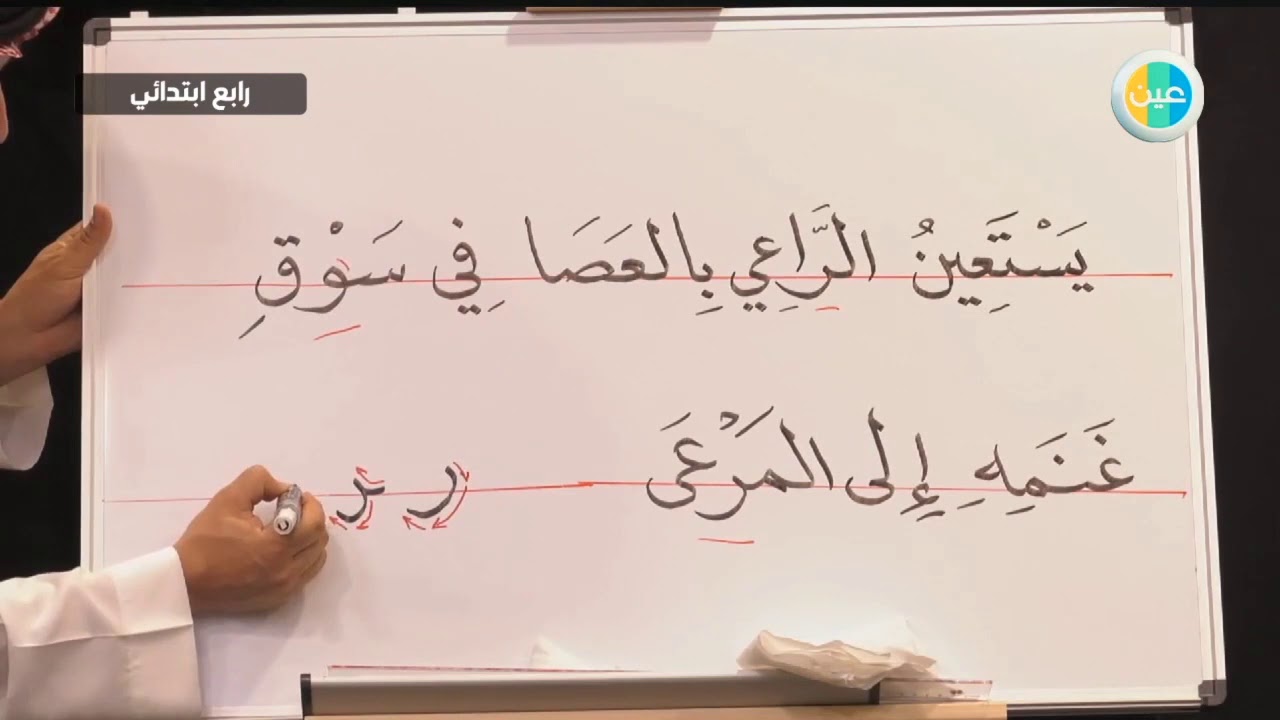 رابع ابتدائي
عين
يَسْتَعِينُ الرَّاعِي بِالعَصَا فِي سَوْقِ
غَنَمِهِ إِلى المَرْعَى ر ر